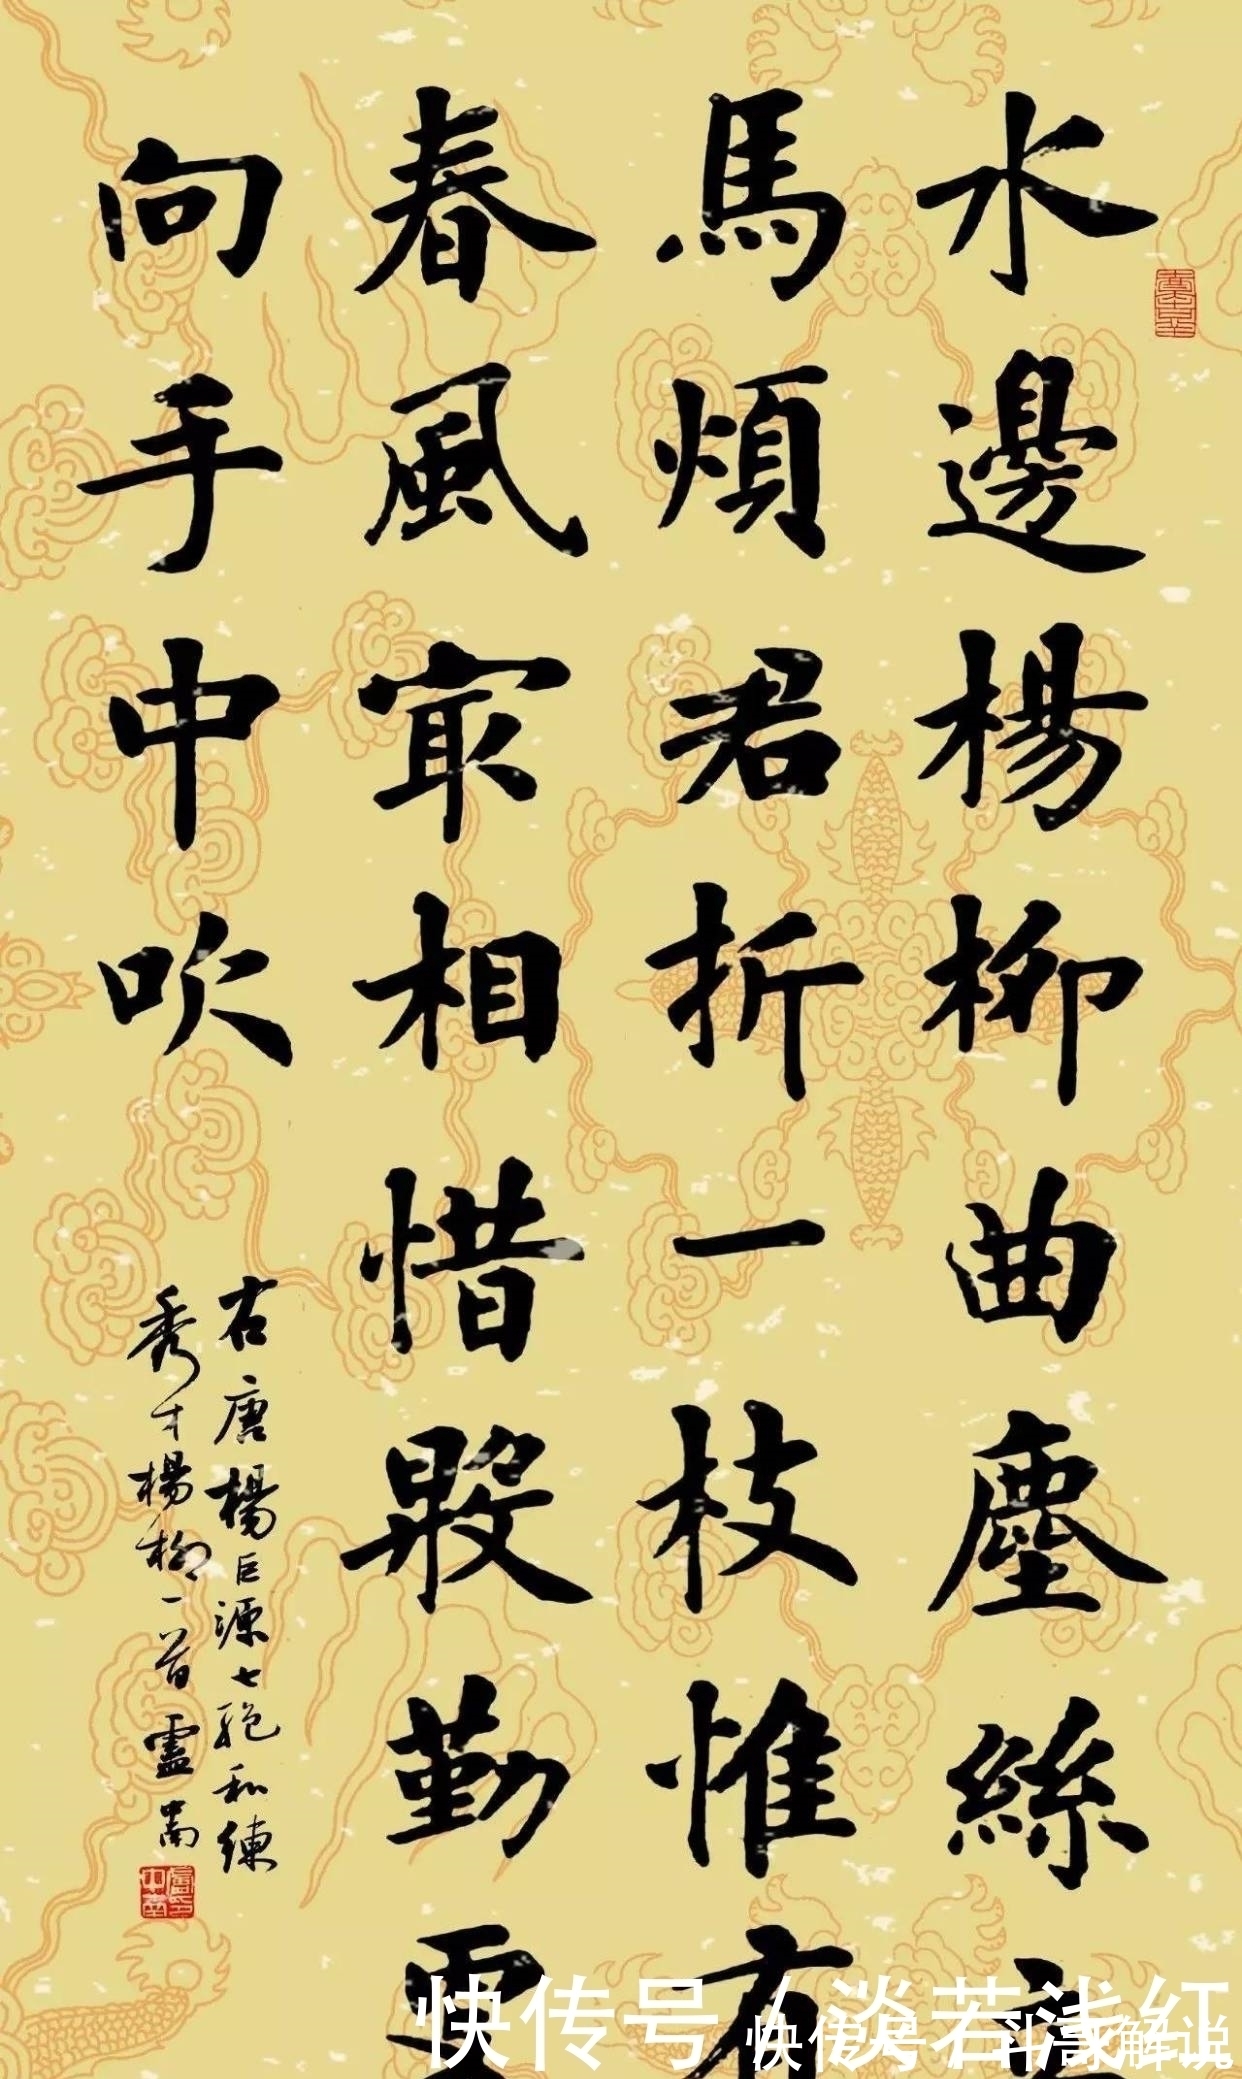 水邊楊柳曲塵絲立
馬煩君折一枝惟有
春風㝡相惜殷勤更
向手中吹
右唐楊巨源七絕和練
秀才楊柳一首 盧中南
快传号/淡若浅红
快传号 解说